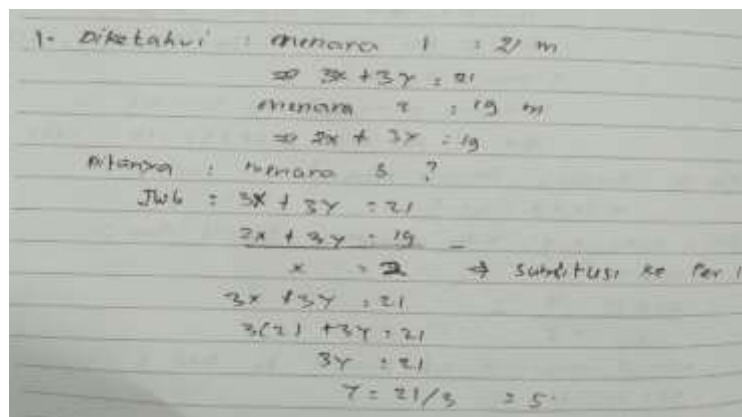 1. Diketahui : menara 1 : 21 m
⇒ 3x + 3y = 21
menara 2 : 19 m
⇒ 2x + 3y = 19
Ditanya : menara 3 ?
Jwb : 3x + 3y = 21
2x + 3y = 19 _
x = 2 → subtitusi ke Per 1
3x + 3y = 21
3(2) + 3y = 21
3y = 21
y = 21/3 = 5